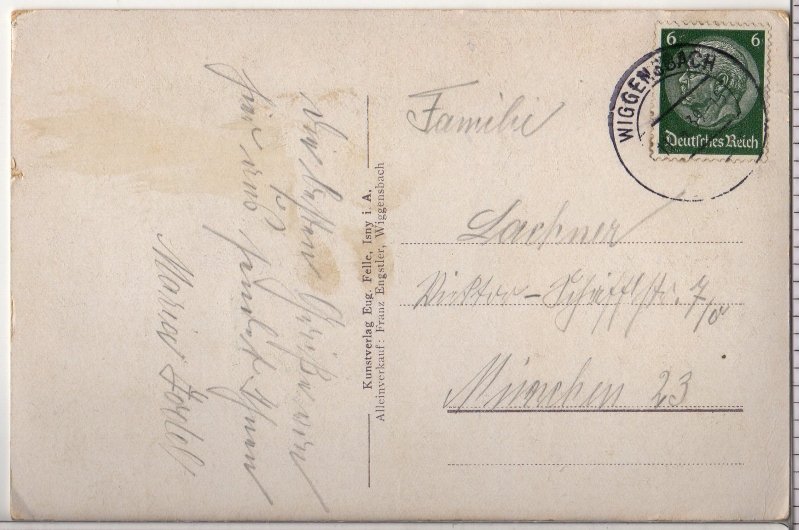 Die besten Grüße von
hier aus sendet Ihnen
Maria
Kunstverlag Eug. Felle, Isny i. A.
Alleinverkauf: Franz Engstler, Wiggensbach
6 6
Deutsches Reich
WIGGENSBACH
Familie
Lachner
Viktor-Scheffelstr. 7/0
München 23